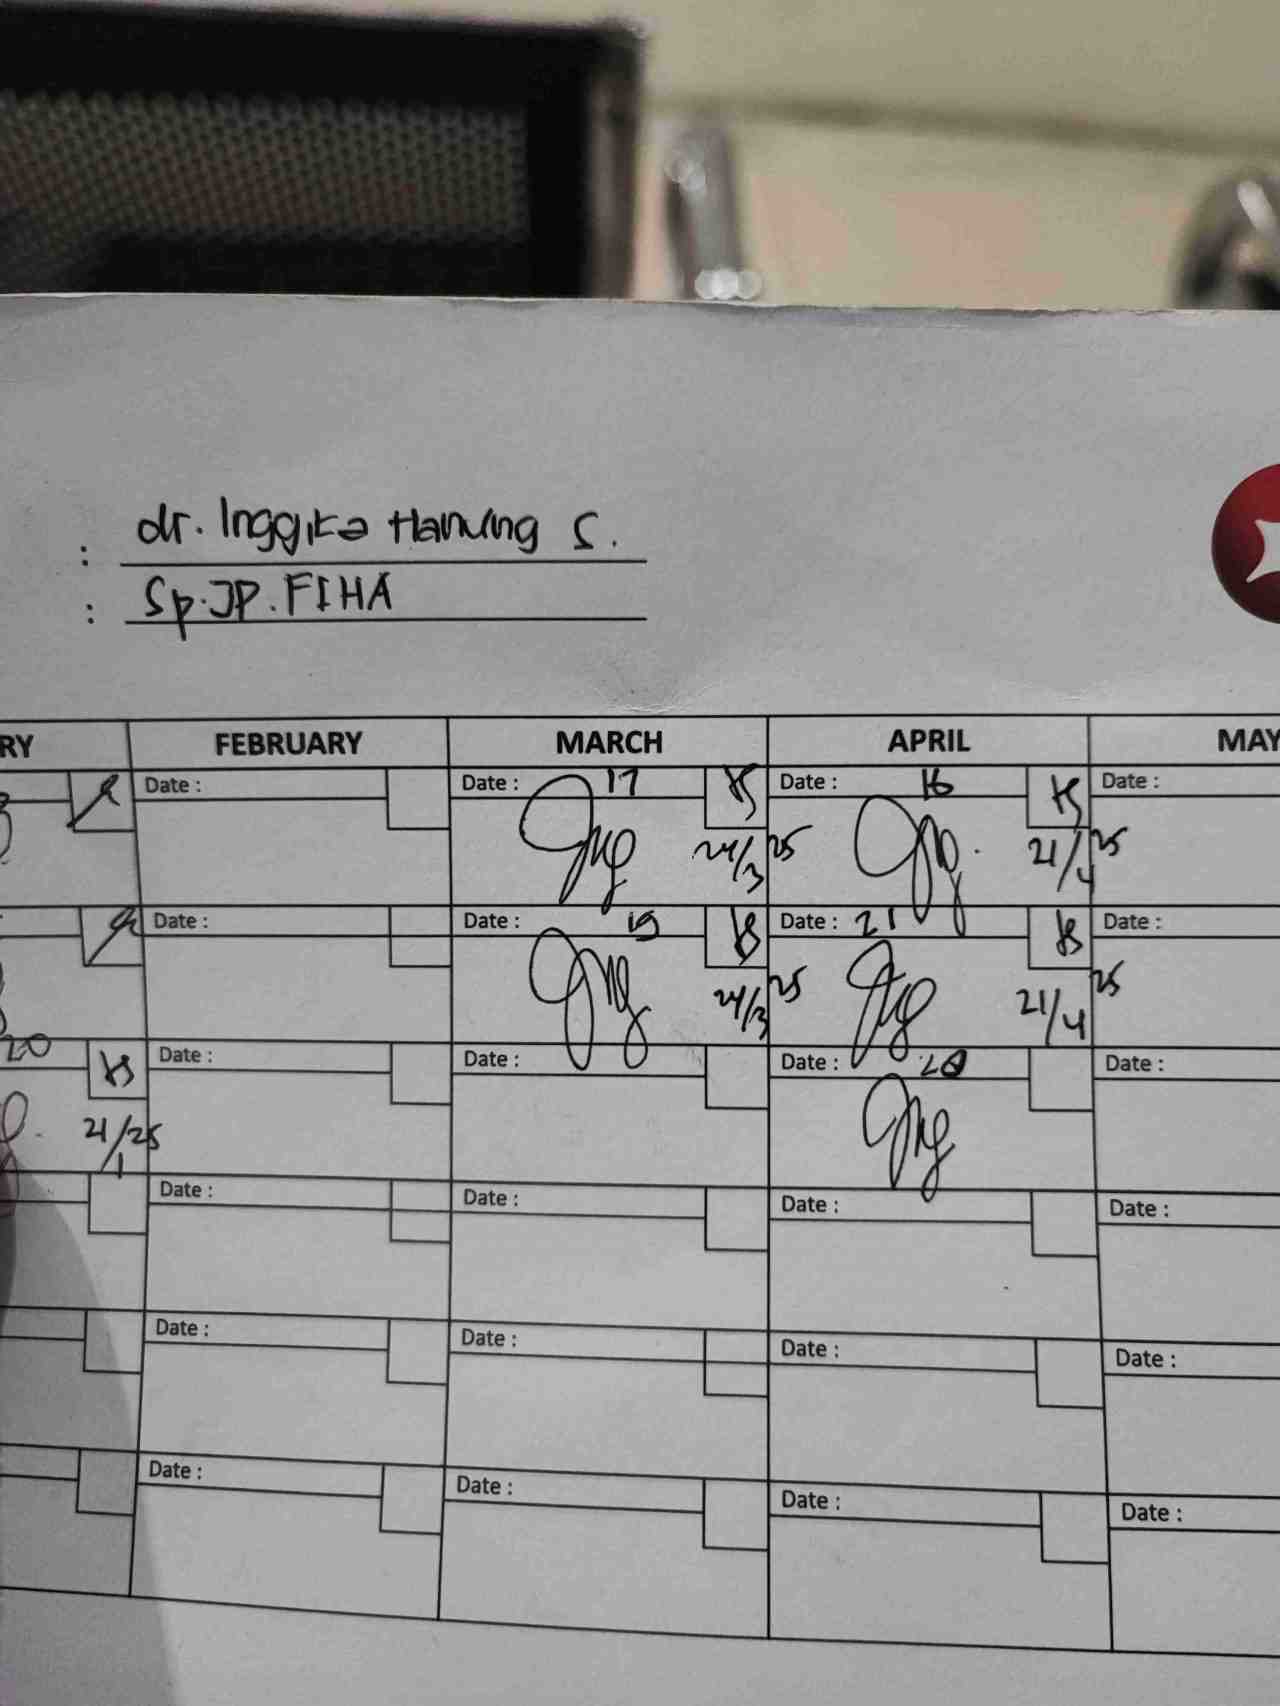 : dr. Inggita Hanung S.
: Sp.JP.FIHA
RY FEBRUARY MARCH APRIL MAY
Date : Date : 17 Date : 16 Date :
24/3 25 21/4 25
Date : Date : 19 Date : 21 Date :
24/3 25 21/4 25
20 Date : Date : Date : 28 Date :
21/1 25
Date : Date : Date : Date :
Date : Date : Date : Date :
Date : Date : Date : Date :